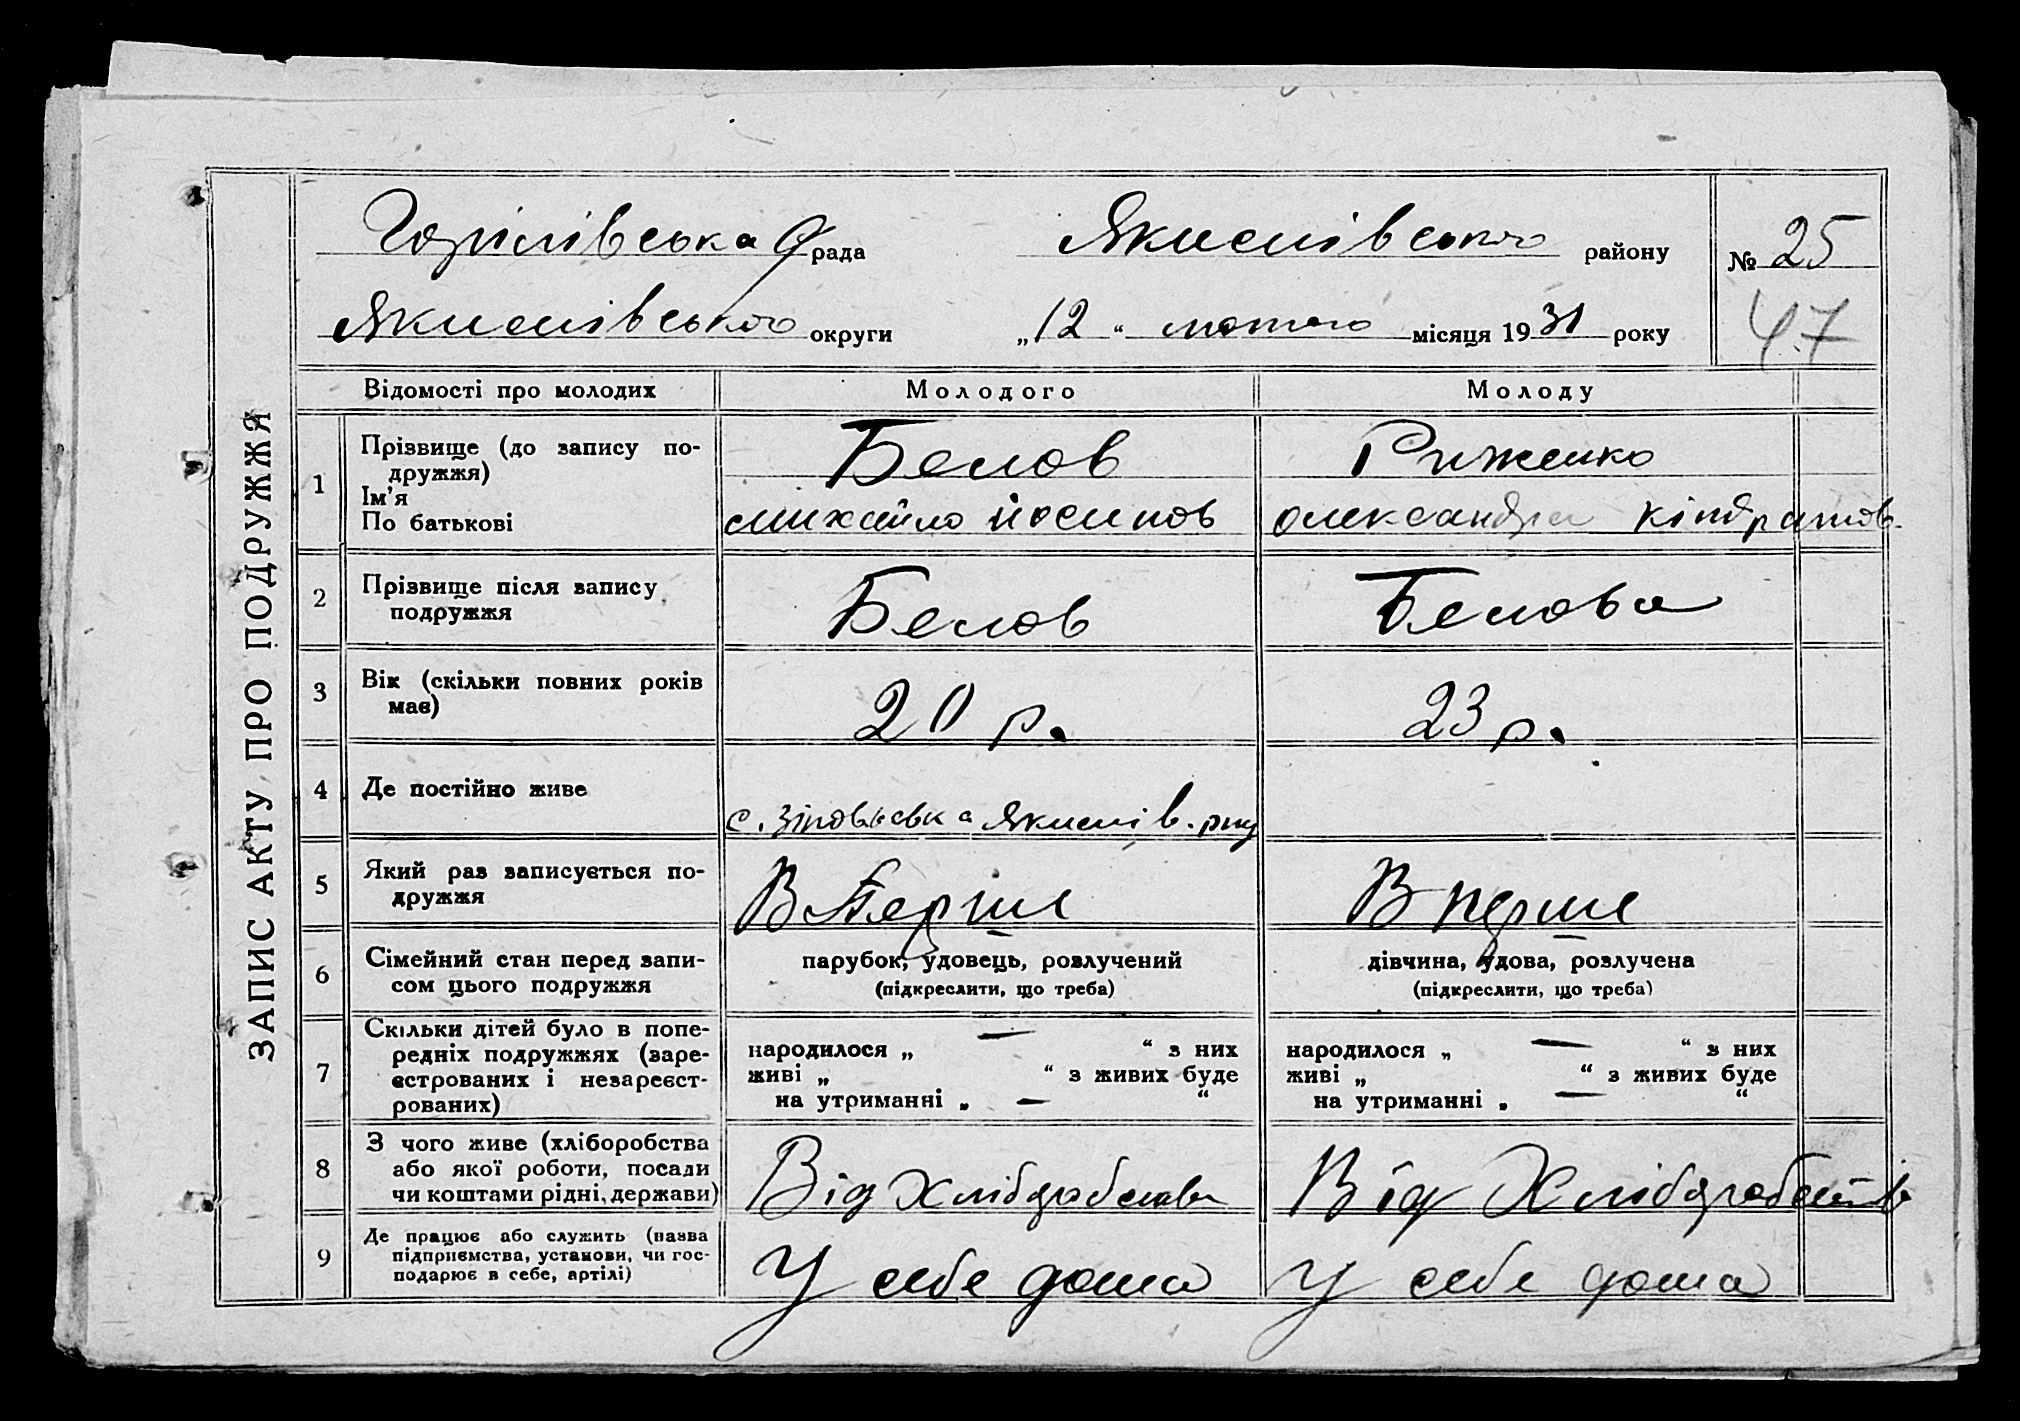 ЗАПИС АКТУ ПРО ПОДРУЖЖЯ
рада Якимівського району № 25
Якимівського округи „12“ лютого місяця 1931 року 47
Відомості про молодих Молодого Молоду
1 Прізвище (до запису по-
дружжя)
Ім’я
По батькові
Белов
михайло йосипов
Риженко
олександра кіндратов.
2 Прізвище після запису
подружжя
Белов
Белова
3 Вік (скільки повних років
має)
20 р.
23 р.
4 Де постійно живе
с. Якимів. рну
5 Який раз записується по-
дружжя
В Перше
В перше
6 Сімейний стан перед запи-
сом цього подружжя
парубок, удовець, розлучений
(підкреслити, що треба)
дівчина, удова, розлучена
(підкреслити, що треба)
7 Скільки дітей було в попе-
редніх подружжях (заре-
єстрованих і незареєст-
рованих)
народилося „ — “ з них
живі „ “ з живих буде
на утриманні „ — “
народилося „ — “ з них
живі „ “ з живих буде
на утриманні „ — “
8 З чого живе (хліборобства
або якої роботи, посади
чи коштами рідні, держави)
Від Хліборобства
Від Хліборобств
9 Де працює або служить (назва
підприємства, установи, чи гос-
подарює в себе, артілі)
У себе дома
У себе дома